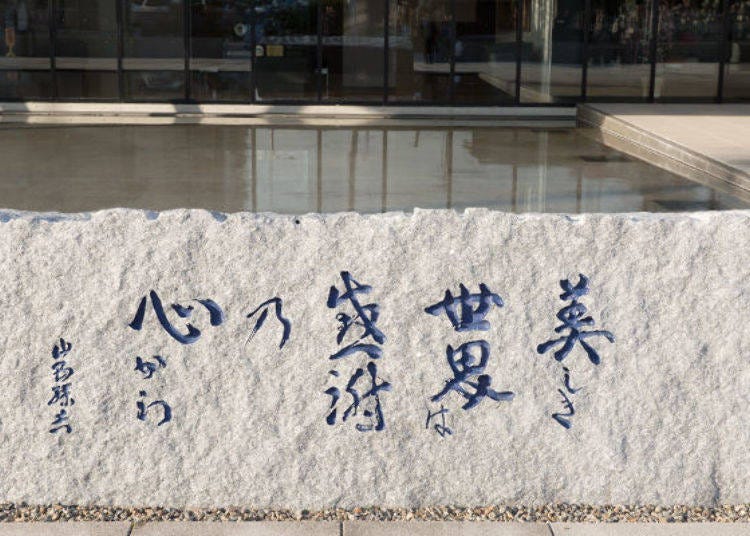 美しき
世界は
感謝
乃
心から
山内勝吉